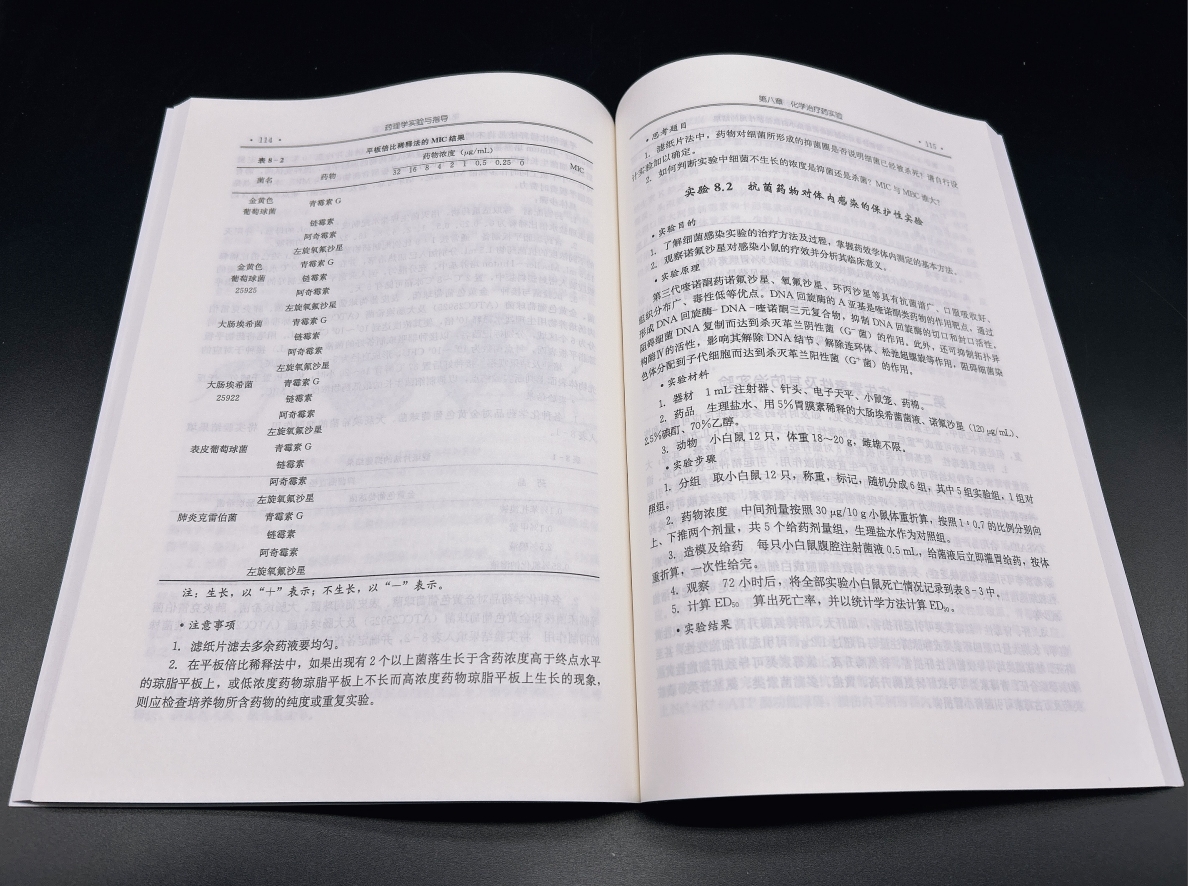 · 114 ·
药理学实验与指导
表 8-2 平板倍比稀释法的 MIC 结果
菌名 药物 药物浓度(μg/mL) MIC
32 16 8 4 2 1 0.5 0.25 0
金黄色
葡萄球菌
青霉素 G
链霉素
阿奇霉素
左旋氧氟沙星
金黄色
葡萄球菌
25925
青霉素 G
链霉素
阿奇霉素
左旋氧氟沙星
大肠埃希菌 青霉素 G
链霉素
阿奇霉素
左旋氧氟沙星
大肠埃希菌
25922
青霉素 G
链霉素
阿奇霉素
左旋氧氟沙星
表皮葡萄球菌 青霉素 G
链霉素
阿奇霉素
左旋氧氟沙星
肺炎克雷伯菌 青霉素 G
链霉素
阿奇霉素
左旋氧氟沙星
注:生长,以“＋”表示;不生长,以“－”表示。
·注意事项
1. 滤纸片滤去多余药液要均匀。
2. 在平板倍比稀释法中,如果出现有 2 个以上菌落生长于含药浓度高于终点水平
的琼脂平板上,或低浓度药物琼脂平板上不长而高浓度药物琼脂平板上生长的现象,
则应检查培养物所含药物的纯度或重复实验。
第八章 化学治疗药实验
· 115 ·
·思考题目
1. 滤纸片法中,药物对细菌所形成的抑菌圈是否说明细菌已经被杀死?请自行设
计实验加以确定。
2. 如何判断实验中细菌不生长的浓度是抑菌还是杀菌?MIC 与 MBC 谁大?
实验 8.2 抗菌药物对体内感染的保护性实验
·实验目的
1. 了解细菌感染实验的治疗方法及过程,掌握药效学体内测定的基本方法。
2. 观察诺氟沙星对感染小鼠的疗效并分析其临床意义。
·实验原理
第三代喹诺酮药诺氟沙星、氧氟沙星、环丙沙星等具有抗菌谱广、口服吸收好、
组织分布广、毒性低等优点。DNA 回旋酶的 A 亚基是喹诺酮类药物的作用靶点,通过
形成 DNA 回旋酶- DNA -喹诺酮三元复合物,抑制 DNA 回旋酶的切口和封口活性,
阻碍细菌 DNA 复制而达到杀灭革兰阴性菌(G⁻ 菌)的作用。此外,还可抑制拓扑异
构酶Ⅳ的活性,影响其解除 DNA 结节、解除连环体、松弛超螺旋等作用,阻碍细菌染
色体分配到子代细胞而达到杀灭革兰阳性菌(G⁺ 菌)的作用。
·实验材料
1. 器材 1 mL 注射器、针头、电子天平、小鼠笼、药棉。
2. 药品 生理盐水、用 5%胃膜素稀释的大肠埃希菌菌液、诺氟沙星(120 μg/mL)、
2.5%碘酊、70%乙醇。
3. 动物 小白鼠 12 只,体重 18～20 g,雌雄不限。
·实验步骤
1. 分组 取小白鼠 12 只,称重,标记,随机分成 6 组,其中 5 组实验组,1 组对
照组。
2. 药物浓度 中间剂量按照 30 μg/10 g 小鼠体重折算,按照 1∶0.7 的比例分别向
上、下推两个剂量,共 5 个给药剂量组,生理盐水作为对照组。
3. 造模及给药 每只小白鼠腹腔注射菌液 0.5 mL,给菌液后立即灌胃给药,按体
重折算,一次性给完。
4. 观察 72 小时后,将全部实验小白鼠死亡情况记录到表 8-3 中。
5. 计算 ED₅₀ 算出死亡率,并以统计学方法计算 ED₅₀。
·实验结果